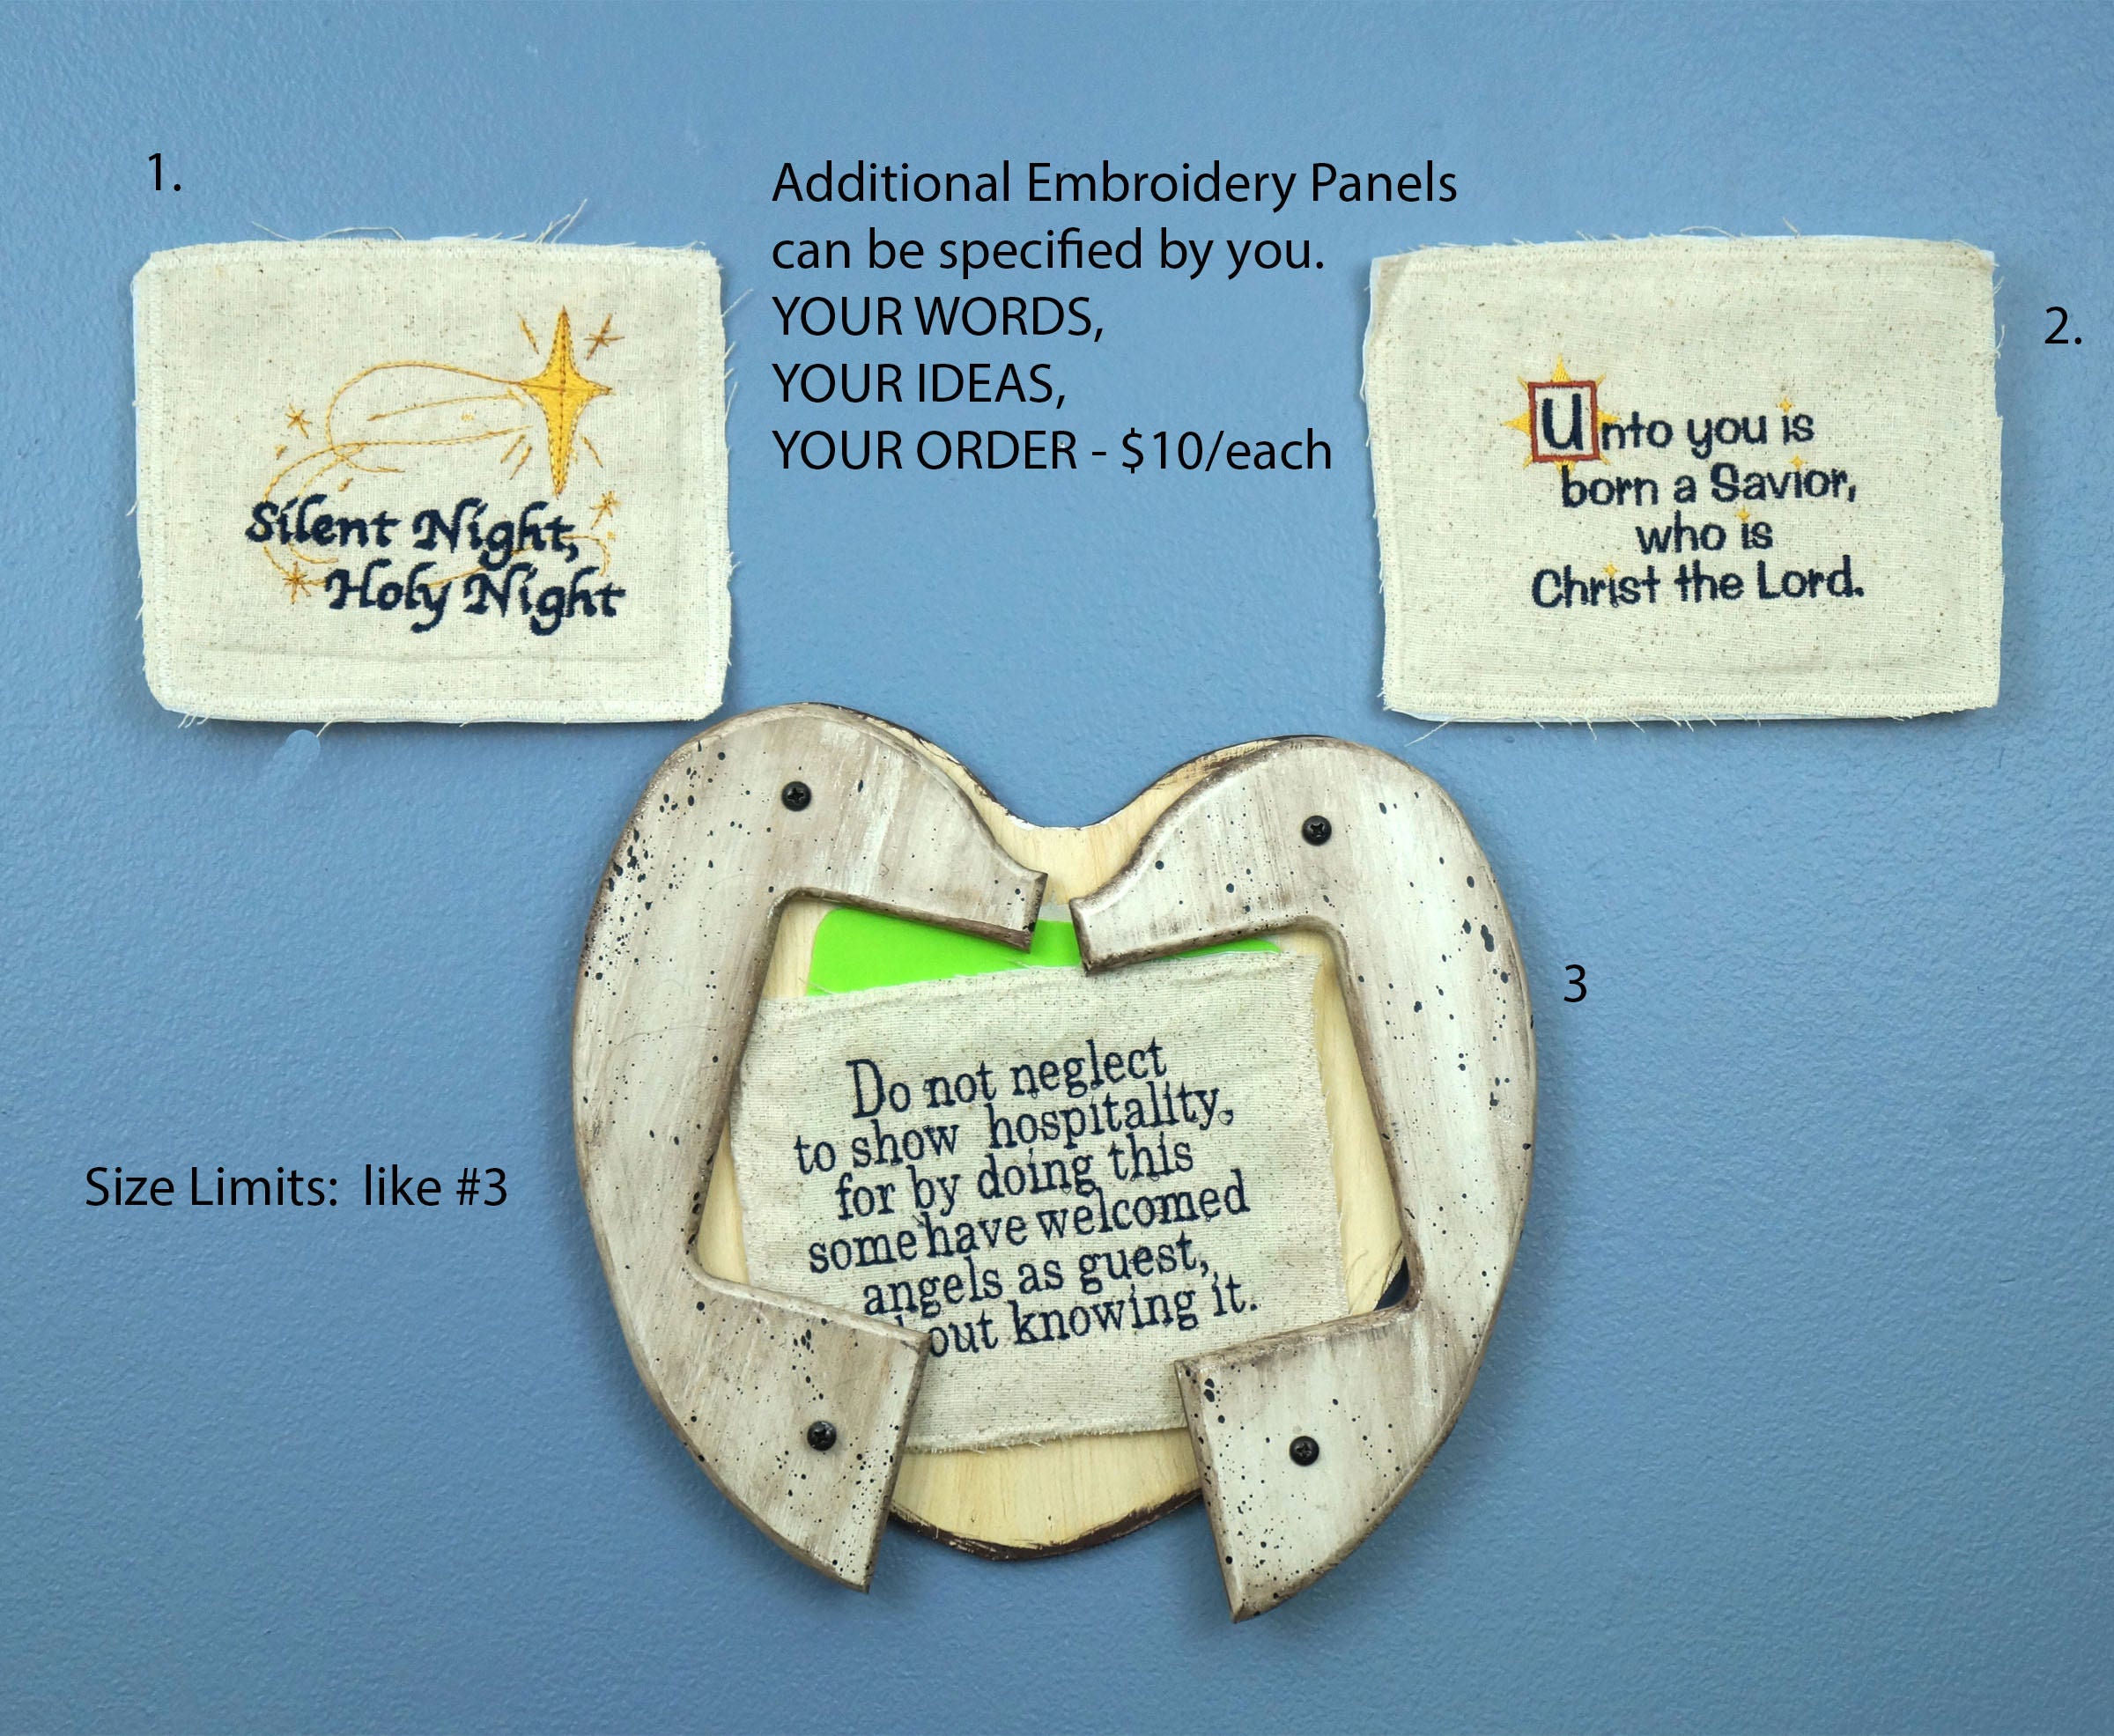 1.
Additional Embroidery Panels
can be specified by you.
YOUR WORDS,
YOUR IDEAS,
YOUR ORDER - $10/each
2.
Silent Night,
Holy Night
Unto you is
born a Savior,
who is
Christ the Lord.
3
Do not neglect
to show hospitality,
for by doing this
some have welcomed
angels as guest,
out knowing it.
Size Limits: like #3